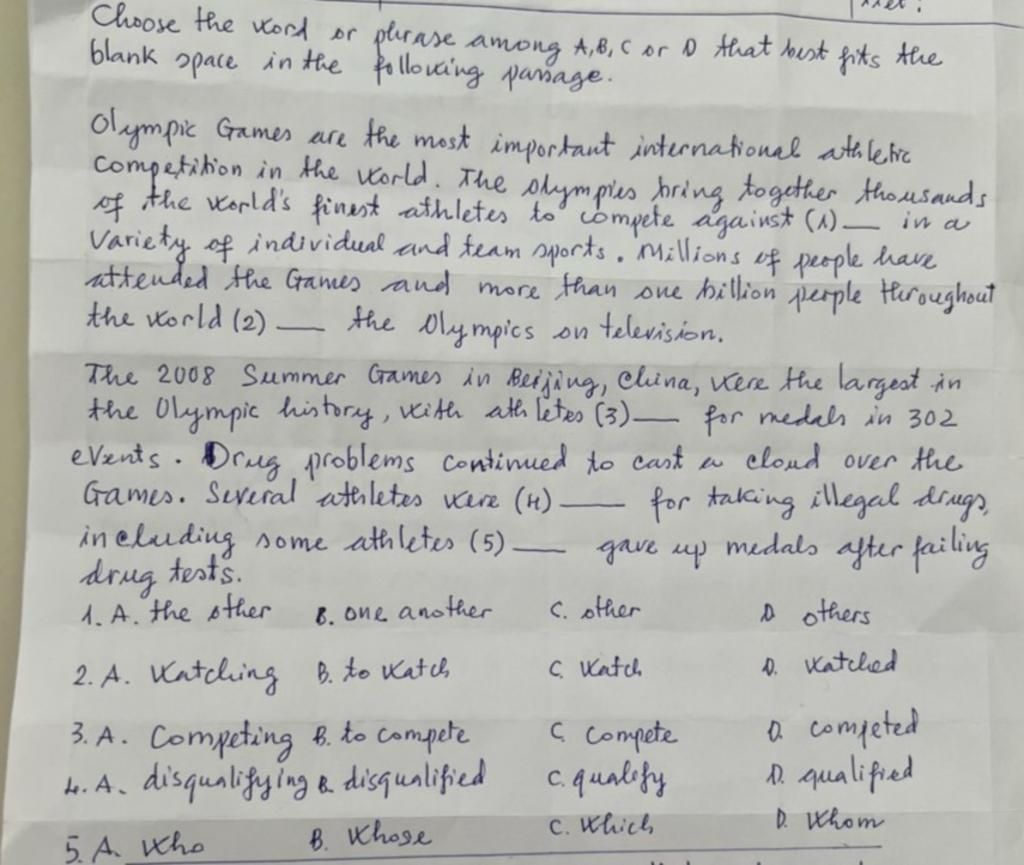 Choose the word or phrase among A, B, C or D that best fits the
blank space in the following passage.
Olympic Games are the most important international athletic
competition in the world. The Olympics bring together thousands
of the world's finest athletes to compete against (1) ___ in a
variety of individual and team sports. Millions of people have
attended the Games and more than one billion people throughout
the world (2) ___ the Olympics on television.
The 2008 Summer Games in Beijing, China, were the largest in
the Olympic history, with athletes (3) ___ for medals in 302
events. Drug problems continued to cast a cloud over the
Games. Several athletes were (4) ___ for taking illegal drugs,
including some athletes (5) ___ gave up medals after failing
drug tests.
1. A. the other B. one another C. other D others
2. A. Watching B. to watch C. watch D. watched
3. A. Competing B. to compete C. compete D. competed
4. A. disqualifying B. disqualified C. qualify D. qualified
5. A. Who B. Whose C. Which D. Whom